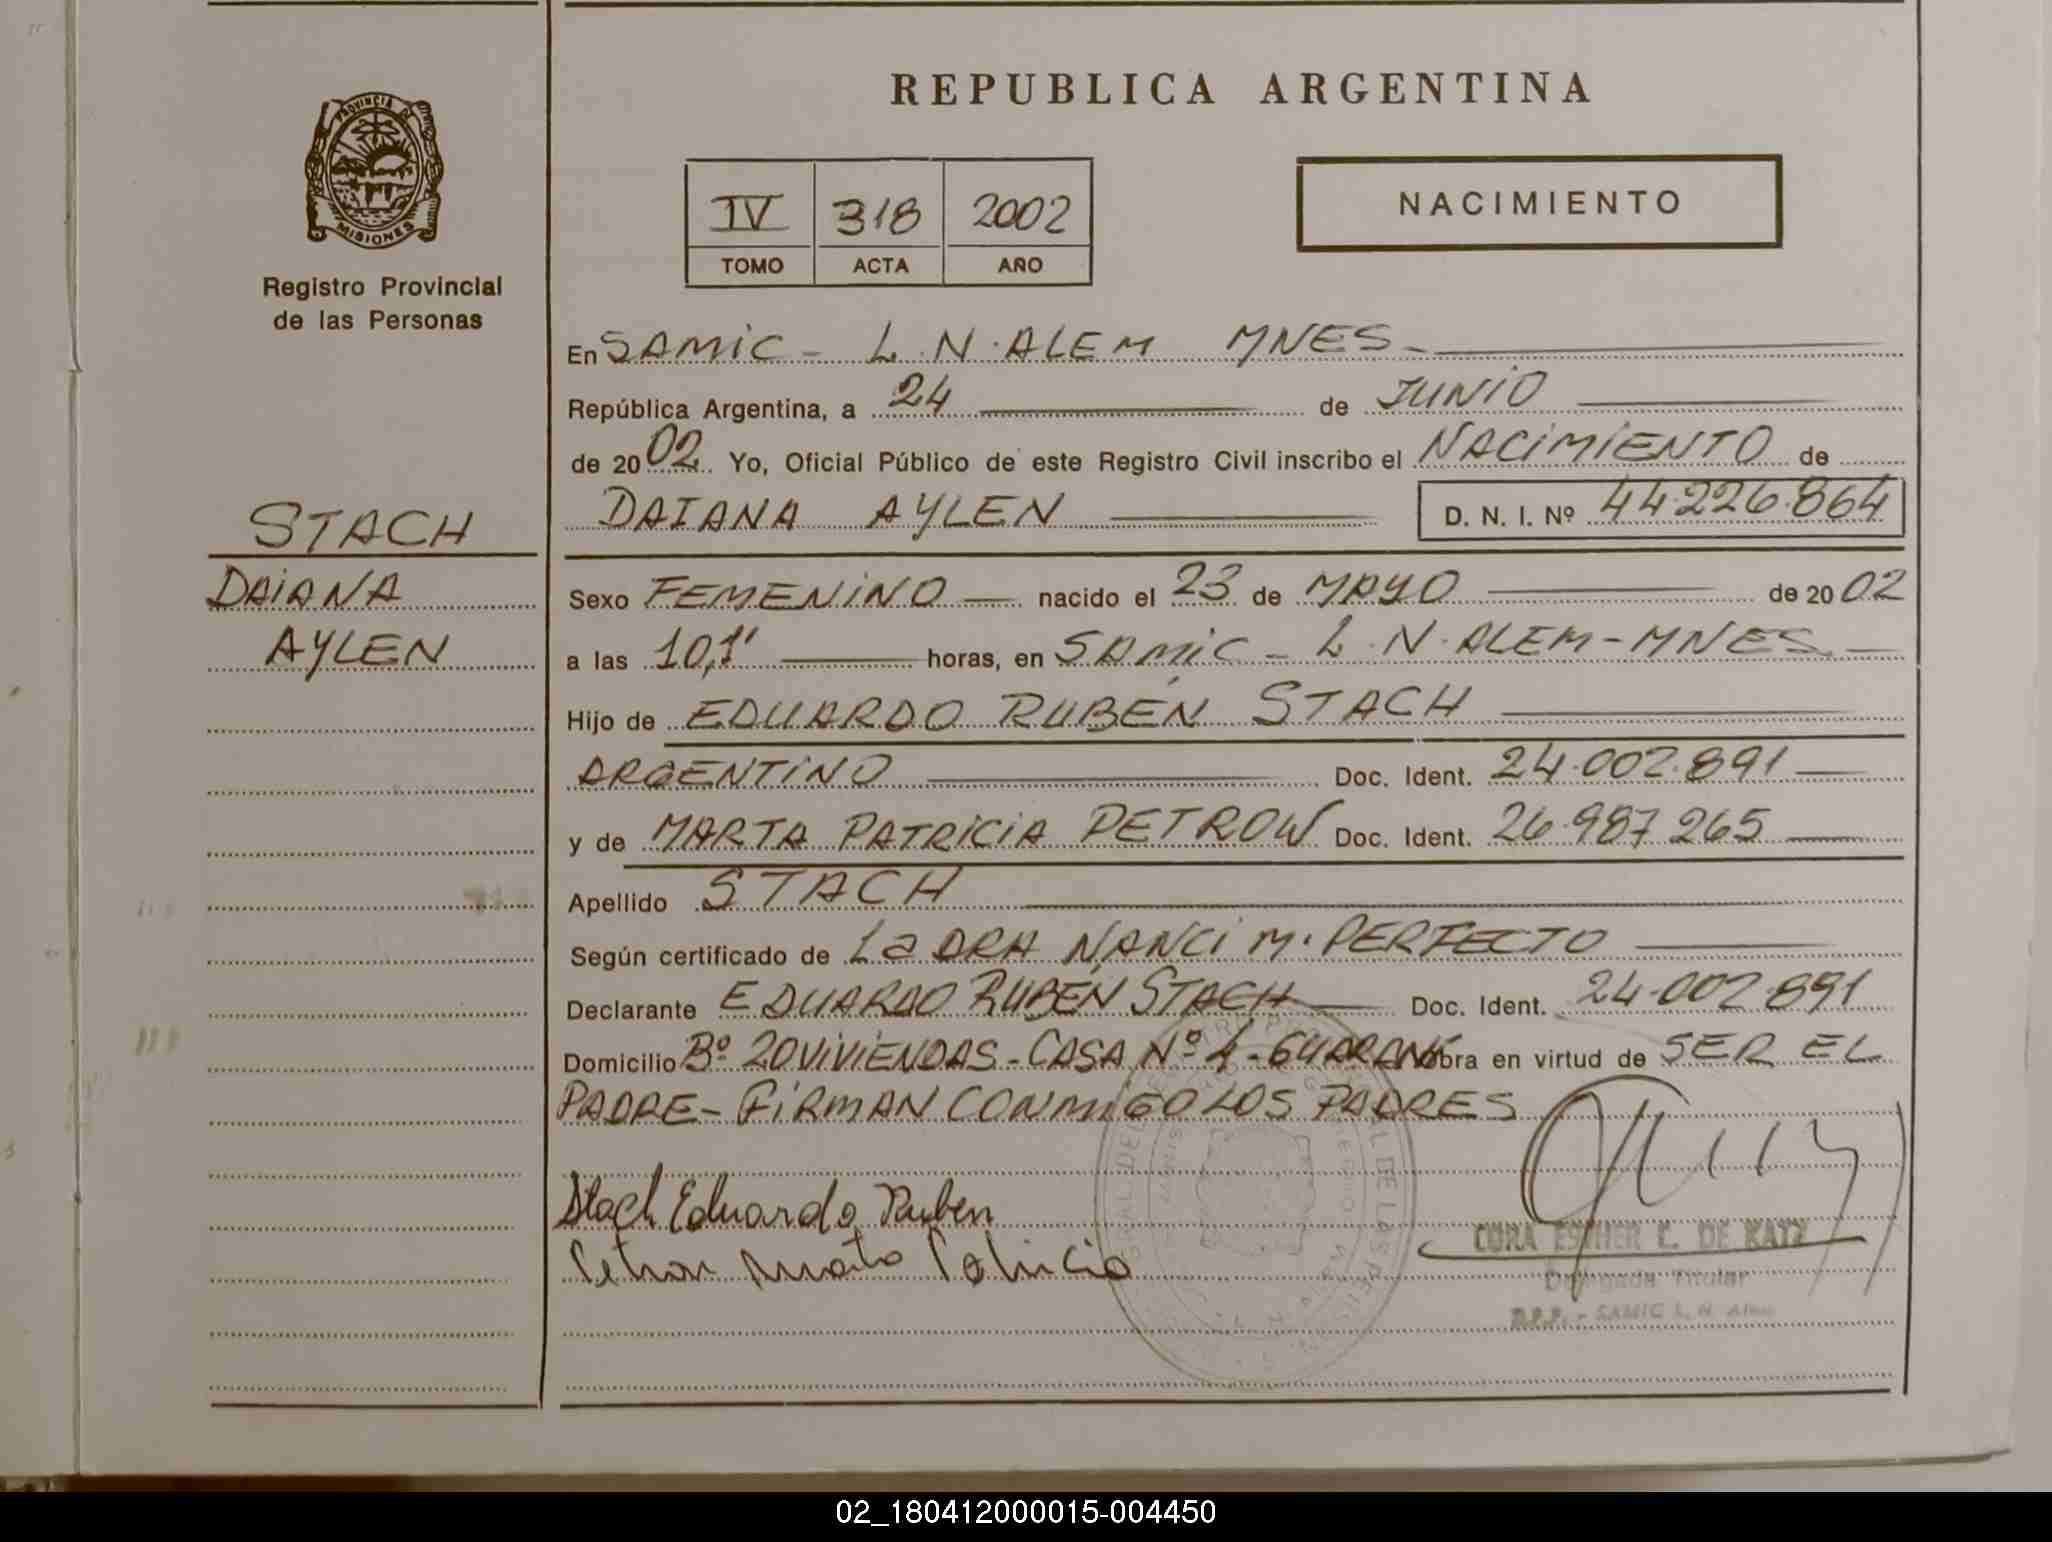 REPUBLICA ARGENTINA
PROVINCIA DE
MISIONES
Registro Provincial
de las Personas
IV 318 2002
TOMO ACTA AÑO
NACIMIENTO
En SAMIC - L.N.ALEM MNES-
República Argentina, a 24 de JUNIO
de 2002 Yo, Oficial Público de este Registro Civil inscribo el NACIMIENTO de
DAIANA AYLEN D. N. I. Nº 44.226.864
STACH
DAIANA
AYLEN
Sexo FEMENINO — nacido el 23 de MAYO de 2002
a las horas, en SAMIC - L.N.ALEM-MNES-
Hijo de EDUARDO RUBÉN STACH
ARGENTINO Doc. Ident. 24.002.891
y de MARTA PATRICIA PETROW Doc. Ident. 26.987.265
Apellido STACH
Según certificado de La DRA NANCI M. PERFECTO
Declarante EDUARDO RUBÉN STACH Doc. Ident. 24.002.891
Domicilio Bº 20 VIVIENDAS - CASA Nº 4 - GUARANI obra en virtud de SER EL
PADRE - FIRMAN CONMIGO LOS PADRES
Stach Eduardo Ruben
Petrow Marta Patricia
CORA ESTHER C. DE KATZ
Delegada Titular
R.P.P. - SAMIC L. N. Alem
02_180412000015-004450